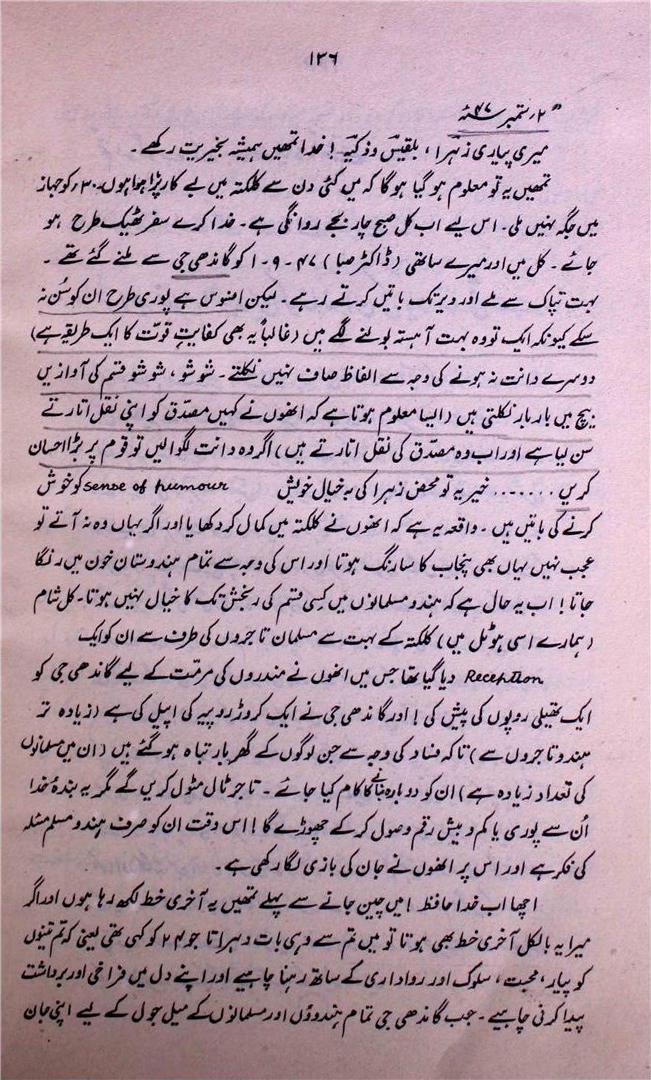 ۱۳۶
۲؍ ستمبر ۴۷ء
میری پیاری زہرا، بلقیس و ذکیہ! خدا تمھیں ہمیشہ بخیریت رکھے۔
تمھیں یہ تو معلوم ہو گیا ہو گا کہ میں کئی دن سے کلکتہ میں بے کار پڑا ہوا ہوں۔ ۳۰؍ کو جہاز
میں جگہ نہیں ملی۔ اس لیے اب کل صبح چار بجے روانگی ہے۔ خدا کرے سفر ٹھیک طرح ہو
جائے۔ کل میں اور میرے ساتھی (ڈاکٹر صبا) ۴۷-۹-۱ کو گاندھی جی سے ملنے گئے تھے۔
بہت تپاک سے ملے اور دیر تک باتیں کرتے رہے۔ لیکن افسوس ہے پوری طرح ان کو سُن نہ
سکے کیونکہ ایک تو وہ بہت آہستہ بولنے لگے ہیں (غالباً یہ بھی کفایتِ قوت کا ایک طریقہ ہے)
دوسرے دانت نہ ہونے کی وجہ سے الفاظ صاف نہیں نکلتے۔ شوشو، شوشو قسم کی آوازیں
بیچ میں بار بار نکلتی ہیں (ایسا معلوم ہوتا ہے کہ انھوں نے کہیں مصدّق کو اپنی نقل اتارتے
سن لیا ہے اور اب وہ مصدّق کی نقل اتارتے ہیں) اگر وہ دانت لگوا لیں تو قوم پر بڑا احسان
کریں ....... خیر یہ تو محض زہرا کی بہ خیال خویش sense of humour کو خوش
کرنے کی باتیں ہیں۔ واقعہ یہ ہے کہ انھوں نے کلکتہ میں کمال کر دکھایا اور اگر یہاں وہ نہ آتے تو
عجب نہیں یہاں بھی پنجاب کا سا رنگ ہوتا اور اس کی وجہ سے تمام ہندوستان خون میں رنگا
جاتا! اب یہ حال ہے کہ ہندو مسلمانوں میں کسی قسم کی رنجش تک کا خیال نہیں ہوتا۔ کل شام
(ہمارے اسی ہوٹل میں) کلکتہ کے بہت سے مسلمان تاجروں کی طرف سے ان کو ایک
Reception دیا گیا تھا جس میں انھوں نے مندروں کی مرمّت کے لیے گاندھی جی کو
ایک تھیلی روپوں کی پیش کی! اور گاندھی جی نے ایک کروڑ روپیہ کی اپیل کی ہے (زیادہ تر
ہندو تاجروں سے) تاکہ فساد کی وجہ سے جن لوگوں کے گھر بار تباہ ہو گئے ہیں (ان میں مسلمانوں
کی تعداد زیادہ ہے) ان کو دوبارہ بنانے کا کام کیا جائے۔ تاجر ٹال مٹول کریں گے مگر یہ بندۂ خدا
اُن سے پوری یا کم و بیش رقم وصول کر کے چھوڑے گا! اس وقت ان کو صرف ہندو مسلم مسئلہ
کی فکر ہے اور اس پر انھوں نے جان کی بازی لگا رکھی ہے۔
اچھا اب خدا حافظ! میں چین جانے سے پہلے تمھیں یہ آخری خط لکھ رہا ہوں اور اگر
میرا یہ بالکل آخری خط بھی ہوتا تو میں تم سے وہی بات دہراتا جو ۲۴ کو کہی تھی یعنی کہ تم تینوں
کو پیار، محبت، سلوک اور رواداری کے ساتھ رہنا چاہیے اور اپنے دل میں فراخی اور برداشت
پیدا کرنی چاہیے۔ جب گاندھی جی تمام ہندوؤں اور مسلمانوں کے میل جول کے لیے اپنی جان